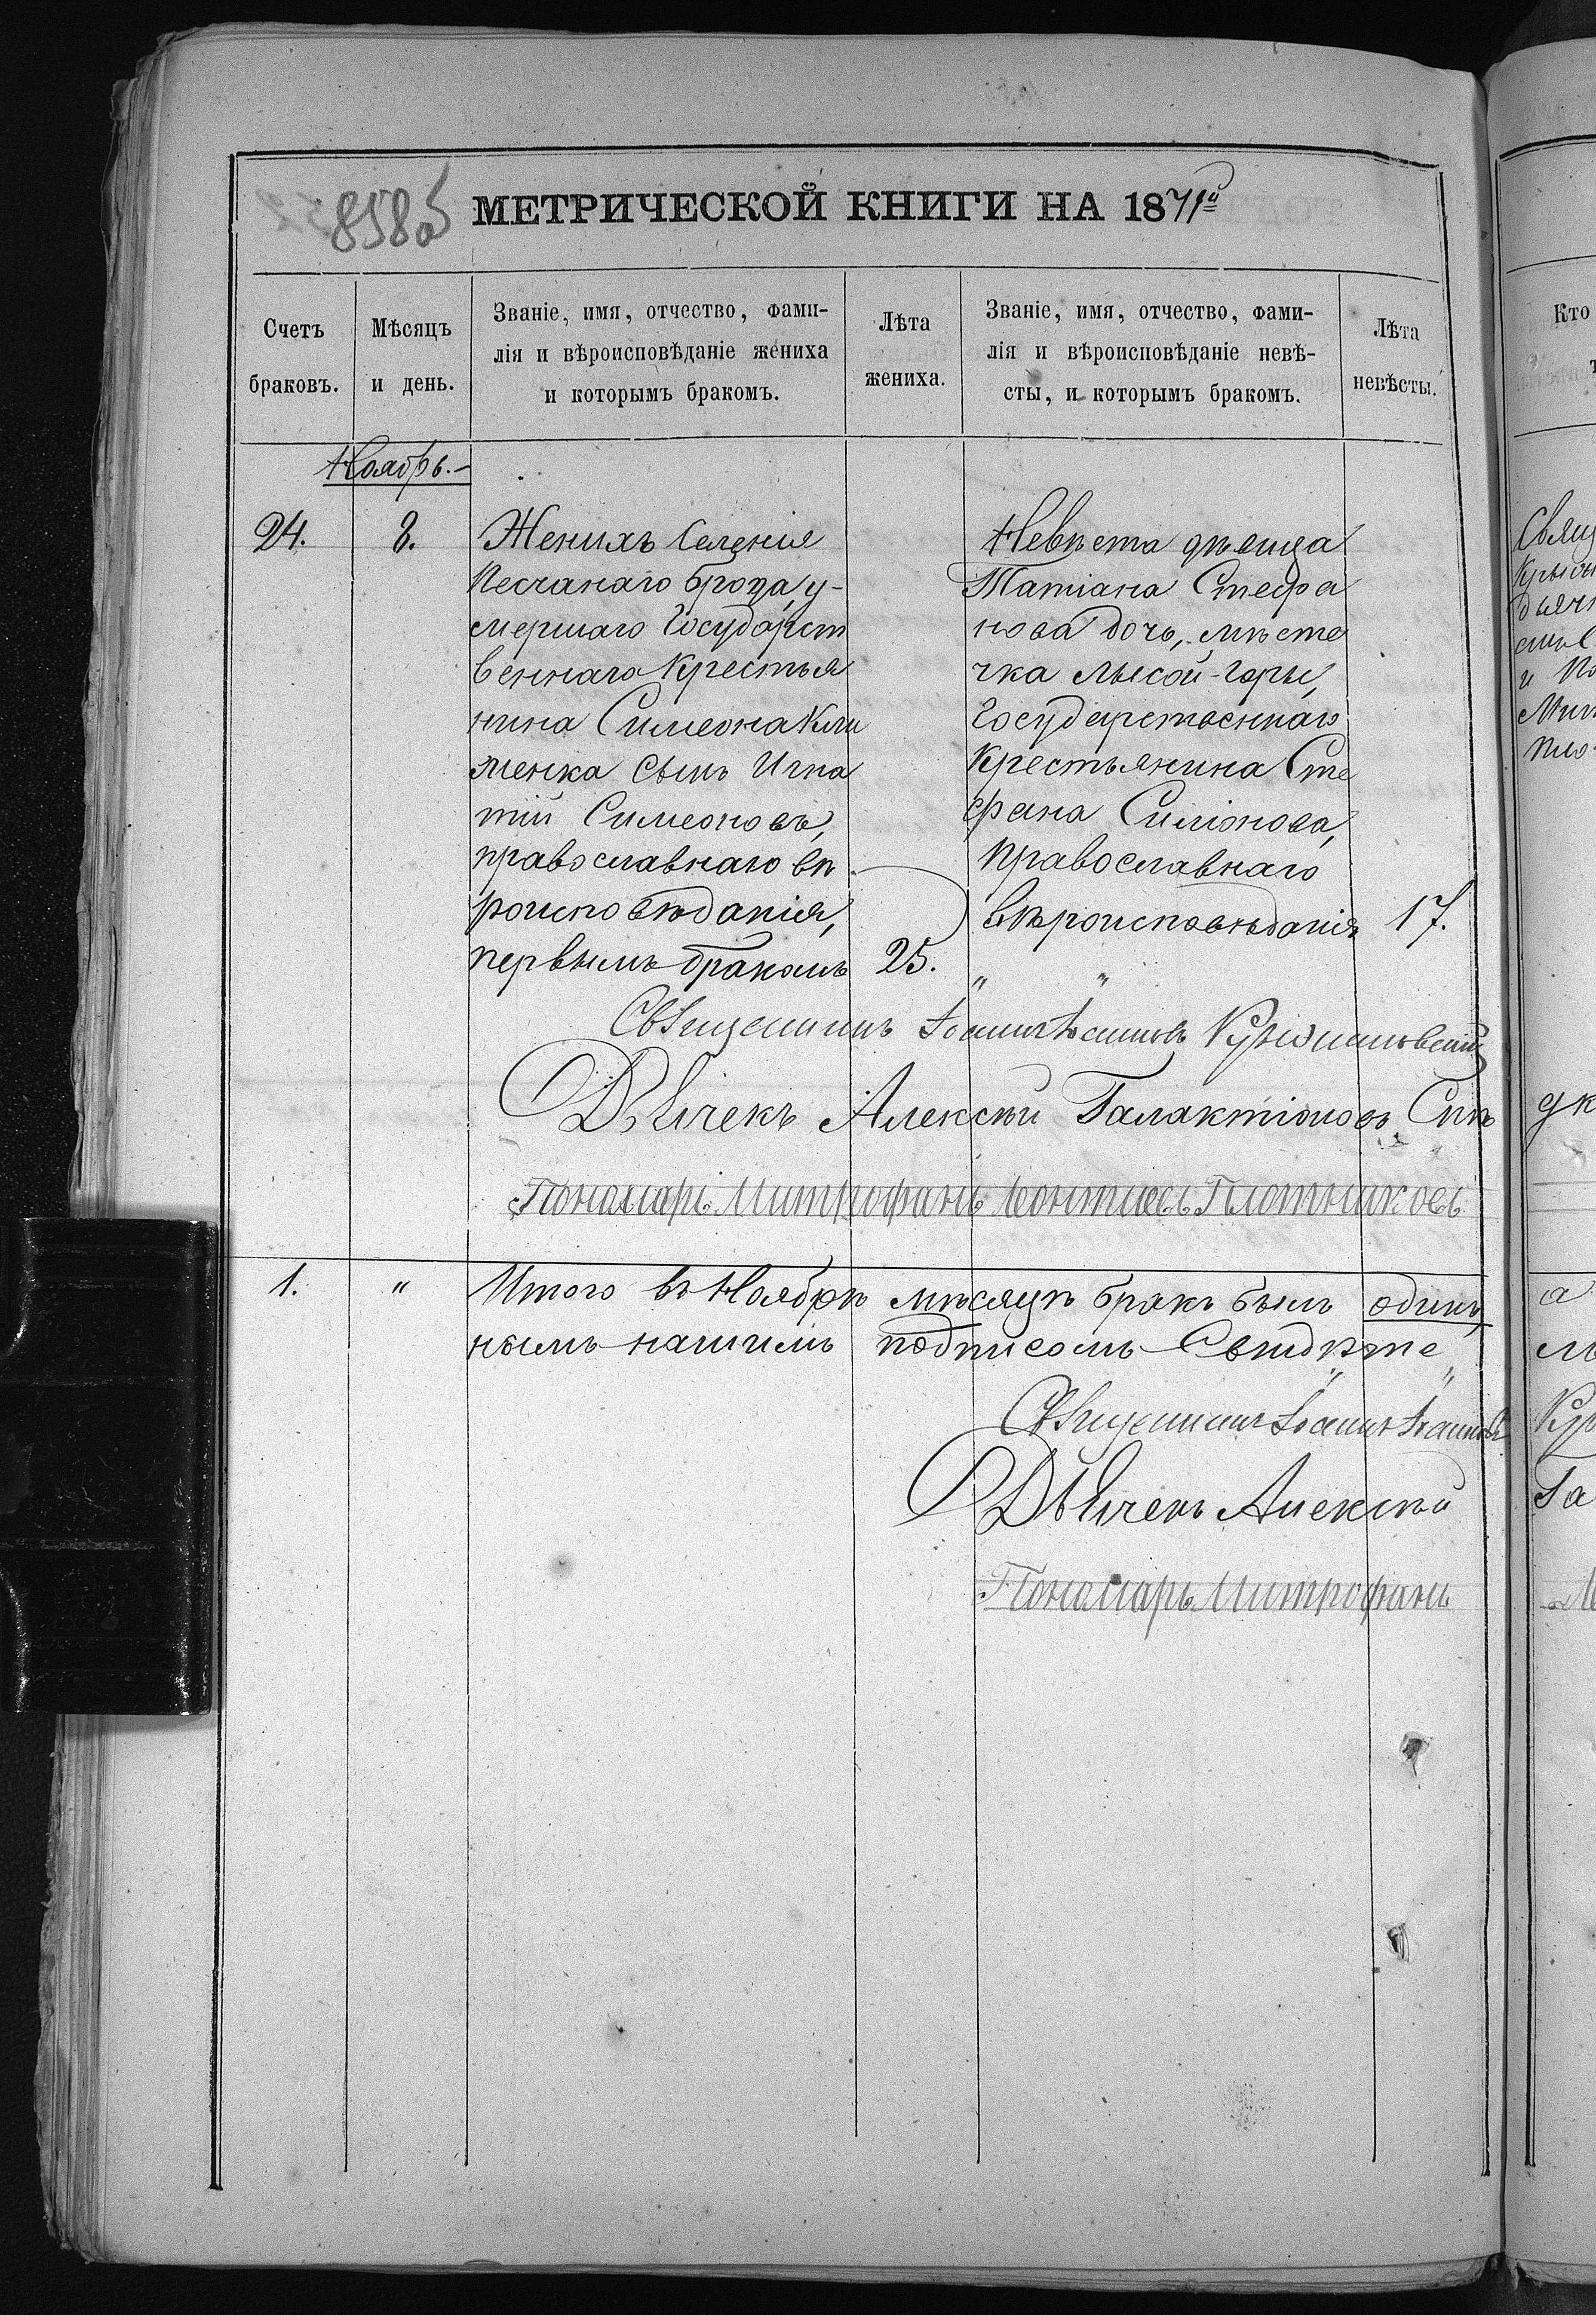 858об
МЕТРИЧЕСКОЙ КНИГИ НА 1871й
Счетъ браковъ.
Мѣсяцъ и день.
Званіе, имя, отчество, фами-
лія и вѣроисповѣданіе жениха
и которымъ бракомъ.
Лѣта жениха.
Званіе, имя, отчество, фами-
лія и вѣроисповѣданіе невѣ-
сты, и которымъ бракомъ.
Лѣта невѣсты.
Кто
Ноябрь.-
24.
8.
Женихъ Селенія
Песчанаго брода, у-
мершаго Государст
веннаго Крестья
нина Симеона Кли
менка сынъ Игна
тій Симеоновъ,
православнаго вѣ
роисповѣданія,
первымъ бракомъ
25.
Невѣста дѣвица
Татіана Стефа
нова дочь, мѣсте
чка Лысой-горы,
Государственнаго
Крестьянина Сте
фана Симіонова,
Православнаго
вѣроисповѣданія
17.
" "
Священникъ Іоаннъ Іоанновъ
Дьячекъ Алексѣй Галактіоновъ
Пономарь Митрофанъ Леонтіевъ Плотниковъ
1.
"
Итого въ Ноябрѣ мѣсяцѣ бракъ былъ одинъ,
нымъ нашимъ подписомъ Свидѣте
" "
Священникъ Іоаннъ Іоанновъ
Дьячекъ Алексѣй
Пономарь Митрофанъ